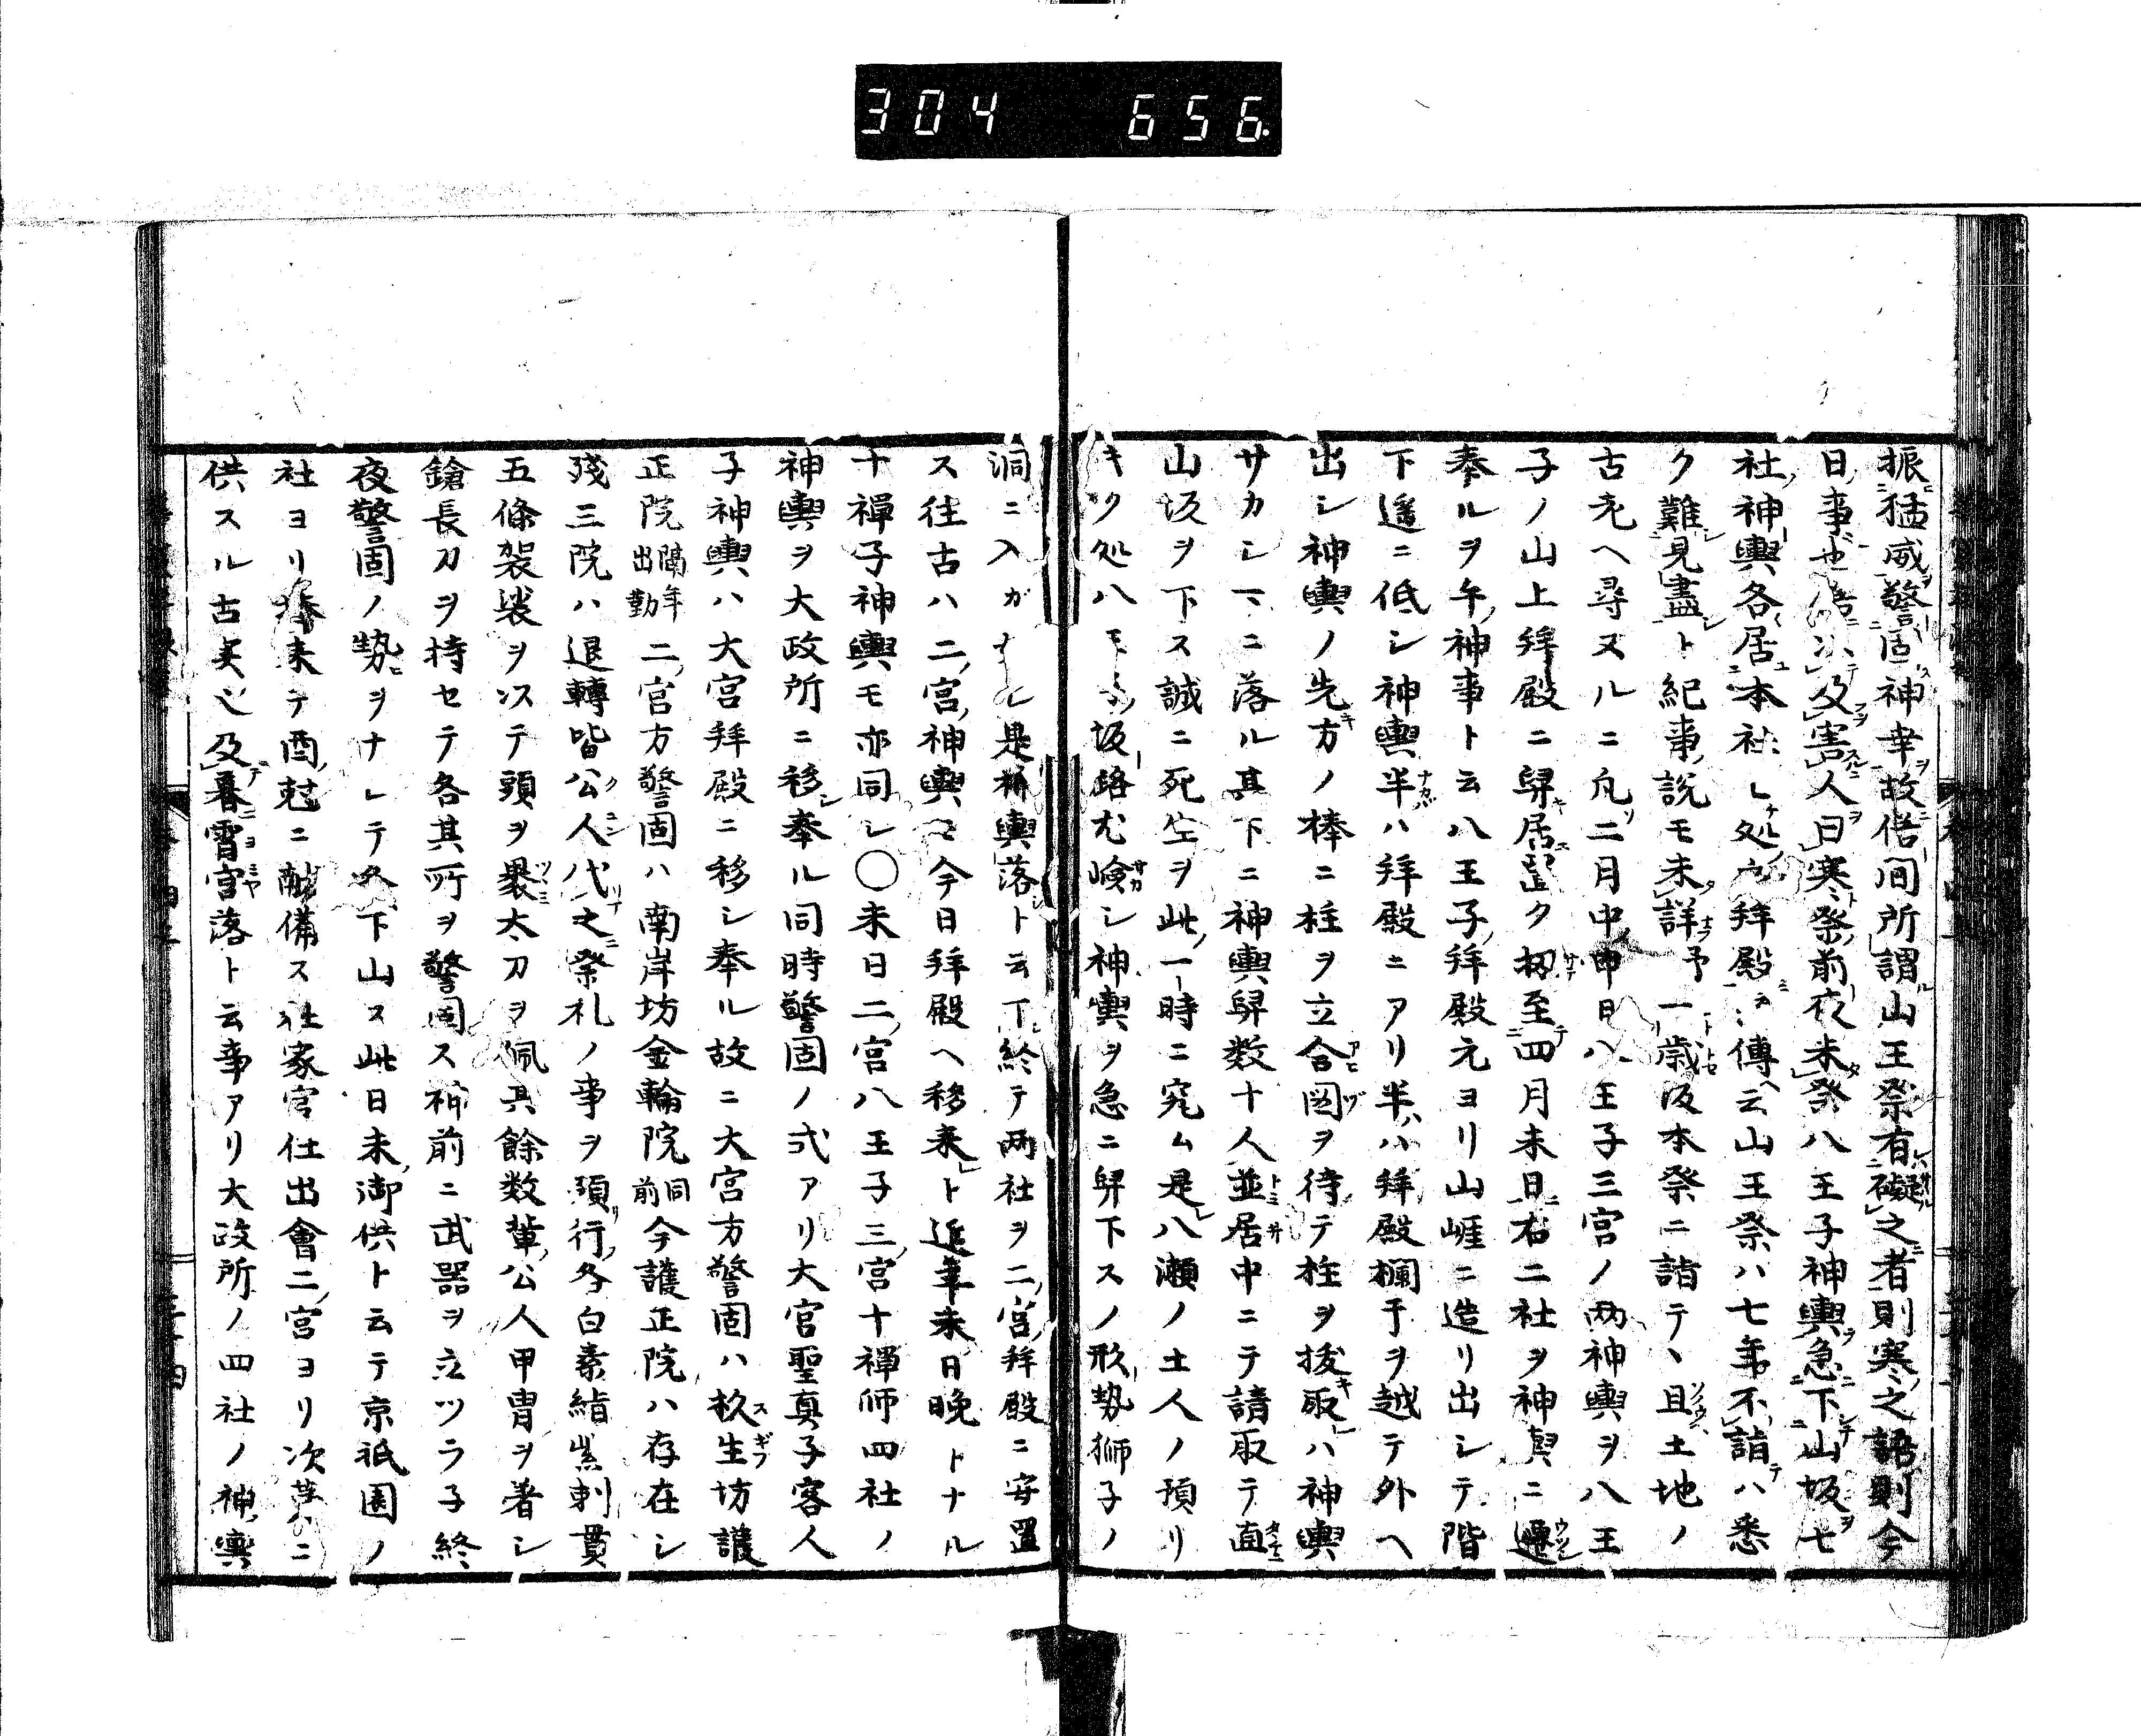 304 656.
振猛威警固神幸故俗間所謂山王祭有礙之者則寒之語則今
日事也俗以及害人曰寒祭前夜未発八王子神輿急下山坂七
社神輿各居本社ノ処拜殿云傳云山王祭ハ七年不詣ハ悉
ク難見盡ト紀事説モ未詳予一歳反本祭ニ詣テ且土地ノ
古老ヘ尋ヌルニ凡二月中申日八王子三宮ノ両神輿ヲ八王
子ノ山上拜殿ニ舁居置ク扨至四月末日右二社ヲ神輿ニ遷
奉ルヲ午神事ト云八王子拜殿元ヨリ山崕ニ造リ出シテ階
下遥ニ低シ神輿半ハ拜殿ニアリ半ハ拜殿欄干ヲ越テ外ヘ
出シ神輿ノ先方ノ棒ニ柱ヲ立合図ヲ待テ柱ヲ拔取ハ神輿
サカシマニ落ル其下ニ神輿舁数十人並居中ニテ請取テ直
山坂ヲ下ス誠ニ死生ヲ此一時ニ究ム是八瀬ノ土人ノ預リ
キク処八王子坂路尤嶮シ神輿ヲ急ニ舁下スノ形勢獅子ノ
洞ニ入カナレ是神輿落ト云丁終テ両社ヲ二宮拜殿ニ安置
ス往古ハ二宮神輿モ今日拜殿ヘ移来ト近年未日晩トナル
十禪子神輿モ亦同シ〇未日二宮八王子三宮十禪師四社ノ
神輿ヲ大政所ニ移シ奉ル同時警固ノ式アリ大宮聖真子客人
子神輿ハ大宮拜殿ニ移シ奉ル故ニ大宮方警固ハ杉生坊護
正院隔年出勤二宮方警固ハ南岸坊金輪院同前今護正院ハ存在シ
殘三院ハ退轉皆公人代之祭礼ノ事ヲ預行各白素絹紫刺貫
五條袈裟ヲ以テ頭ヲ裹太刀ヲ佩其餘数輩公人甲冑ヲ著シ
鎗長刀ヲ持セテ各其所ヲ警固ス神前ニ武器ヲ立ツラ子終
夜警固ノ勢ヲナシテ各下山ス此日未御供ト云テ京祇園ノ
社ヨリ捧来テ酉尅ニ献備ス社家宮仕出會二宮ヨリ次第ニ
供スル古実也及暮宵宮落ト云事アリ大政所ノ四社ノ神輿